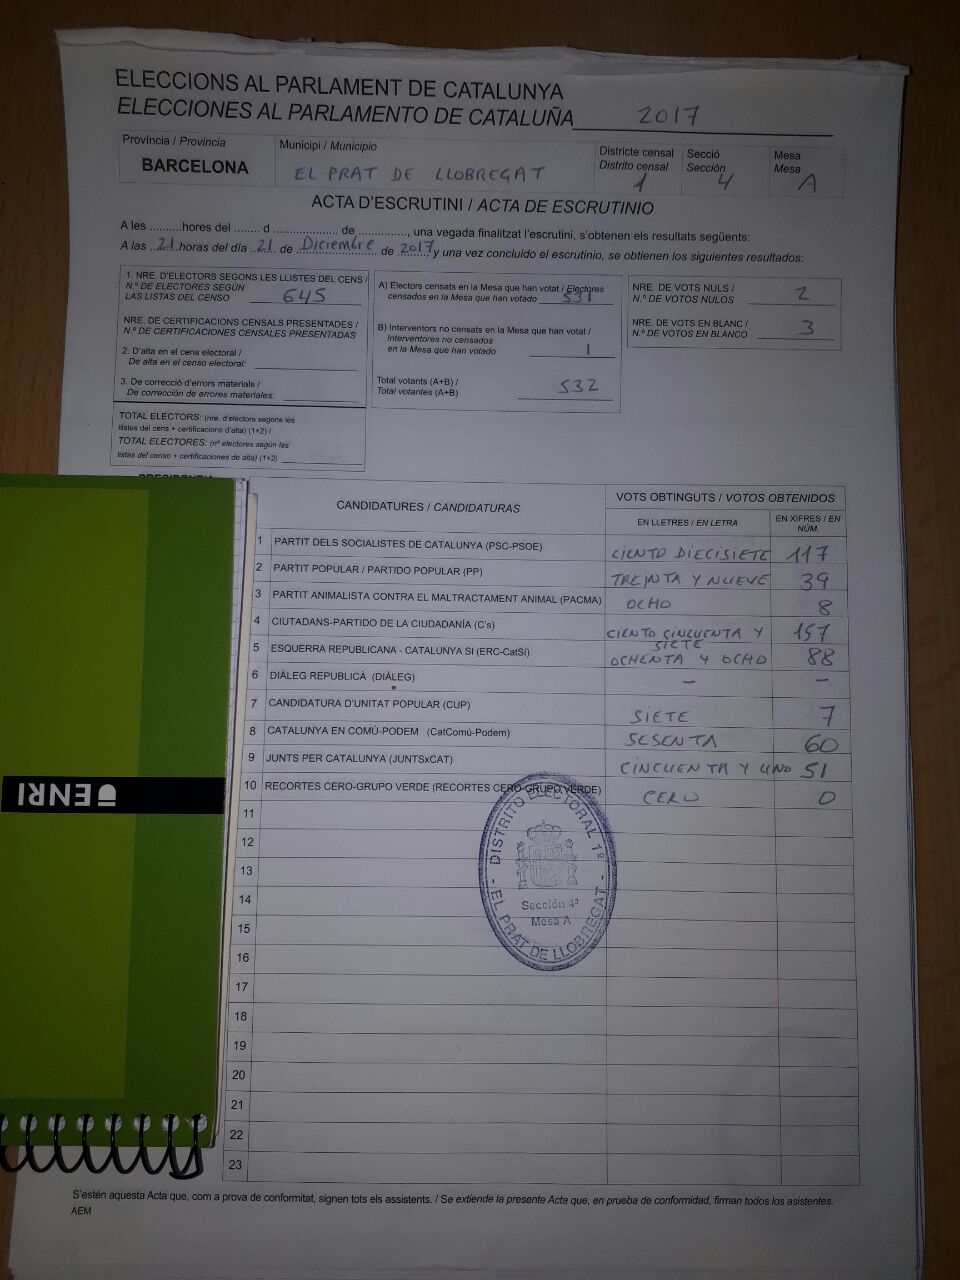 ELECCIONS AL PARLAMENT DE CATALUNYA
ELECCIONES AL PARLAMENTO DE CATALUÑA 2017
Província / Provincia
BARCELONA
Municipi / Municipio
EL PRAT DE LLOBREGAT
Districte censal
Distrito censal
1
Secció
Sección
4
Mesa
Mesa
A
ACTA D'ESCRUTINI / ACTA DE ESCRUTINIO
A les ..........hores del ........ d .................... de ..............., una vegada finalitzat l'escrutini, s'obtenen els resultats següents:
A las ..21..horas del día .21.. de Diciembre de 2017, y una vez concluido el escrutinio, se obtienen los siguientes resultados:
1. NRE. D'ELECTORS SEGONS LES LLISTES DEL CENS /
N.º DE ELECTORES SEGÚN
LAS LISTAS DEL CENSO 645
NRE. DE CERTIFICACIONS CENSALS PRESENTADES /
N.º DE CERTIFICACIONES CENSALES PRESENTADAS
2. D'alta en el cens electoral /
De alta en el censo electoral:
3. De correcció d'errors materials /
De corrección de errores materiales:
TOTAL ELECTORS: (nre. d'electors segons les
llistes del cens + certificacions d'alta) (1+2) /
TOTAL ELECTORES: (nº electores según las
listas del censo + certificaciones de alta) (1+2)
A) Electors censats en la Mesa que han votat / Electores
censados en la Mesa que han votado 531
B) Interventors no censats en la Mesa que han votat /
Interventores no censados
en la Mesa que han votado 1
Total votants (A+B) /
Total votantes (A+B) 532
NRE. DE VOTS NULS /
N.º DE VOTOS NULOS 2
NRE. DE VOTS EN BLANC /
N.º DE VOTOS EN BLANCO 3
CANDIDATURES / CANDIDATURAS
VOTS OBTINGUTS / VOTOS OBTENIDOS
EN LLETRES / EN LETRA
EN XIFRES / EN NÚM.
1 PARTIT DELS SOCIALISTES DE CATALUNYA (PSC-PSOE) CIENTO DIECISIETE 117
2 PARTIT POPULAR / PARTIDO POPULAR (PP) TREINTA Y NUEVE 39
3 PARTIT ANIMALISTA CONTRA EL MALTRACTAMENT ANIMAL (PACMA) OCHO 8
4 CIUTADANS-PARTIDO DE LA CIUDADANÍA (C's) CIENTO CINCUENTA Y SIETE 157
5 ESQUERRA REPUBLICANA - CATALUNYA SI (ERC-CatSí) OCHENTA Y OCHO 88
6 DIÀLEG REPUBLICÀ (DIÀLEG) – –
7 CANDIDATURA D'UNITAT POPULAR (CUP) SIETE 7
8 CATALUNYA EN COMÚ-PODEM (CatComú-Podem) SESENTA 60
9 JUNTS PER CATALUNYA (JUNTSxCAT) CINCUENTA Y UNO 51
10 RECORTES CERO-GRUPO VERDE (RECORTES CERO-GRUPO VERDE) CERO 0
11
12
13
14
15
16
17
18
19
20
21
22
23
- DISTRITO ELECTORAL 1º -
EL PRAT DE LLOBREGAT
Sección 4ª
Mesa A
ENRI
S'estén aquesta Acta que, com a prova de conformitat, signen tots els assistents. / Se extiende la presente Acta que, en prueba de conformidad, firman todos los asistentes.
AEM